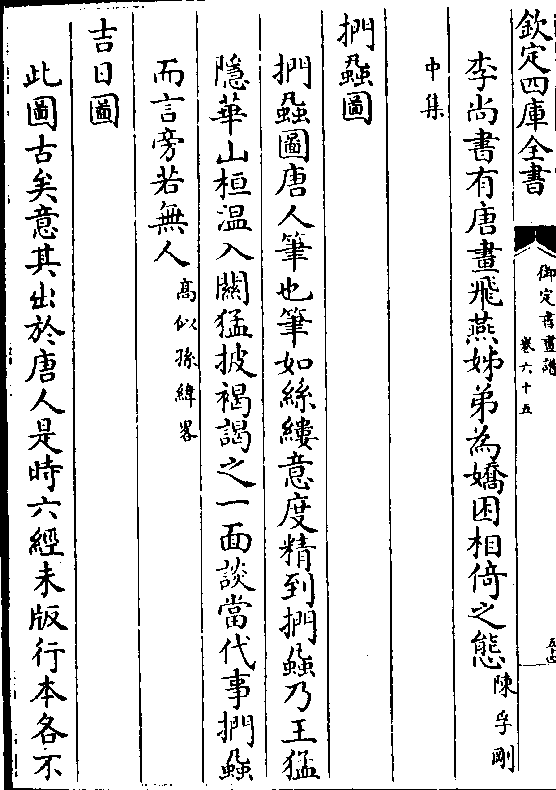 欽定四庫全書
御定書畫譜
卷六十五
五十四
李尚書有唐畫飛燕姊弟為嬌困相倚之態陳孚剛
中集
捫蝨圖
捫蝨圖唐人筆也筆如絲縷意度精到捫蝨乃王猛
隱華山桓温入關猛披褐謁之一面談當代事捫蝨
而言旁若無人高似孫緯畧
吉日圖
此圖古矣意其出於唐人是時六經未版行本各不